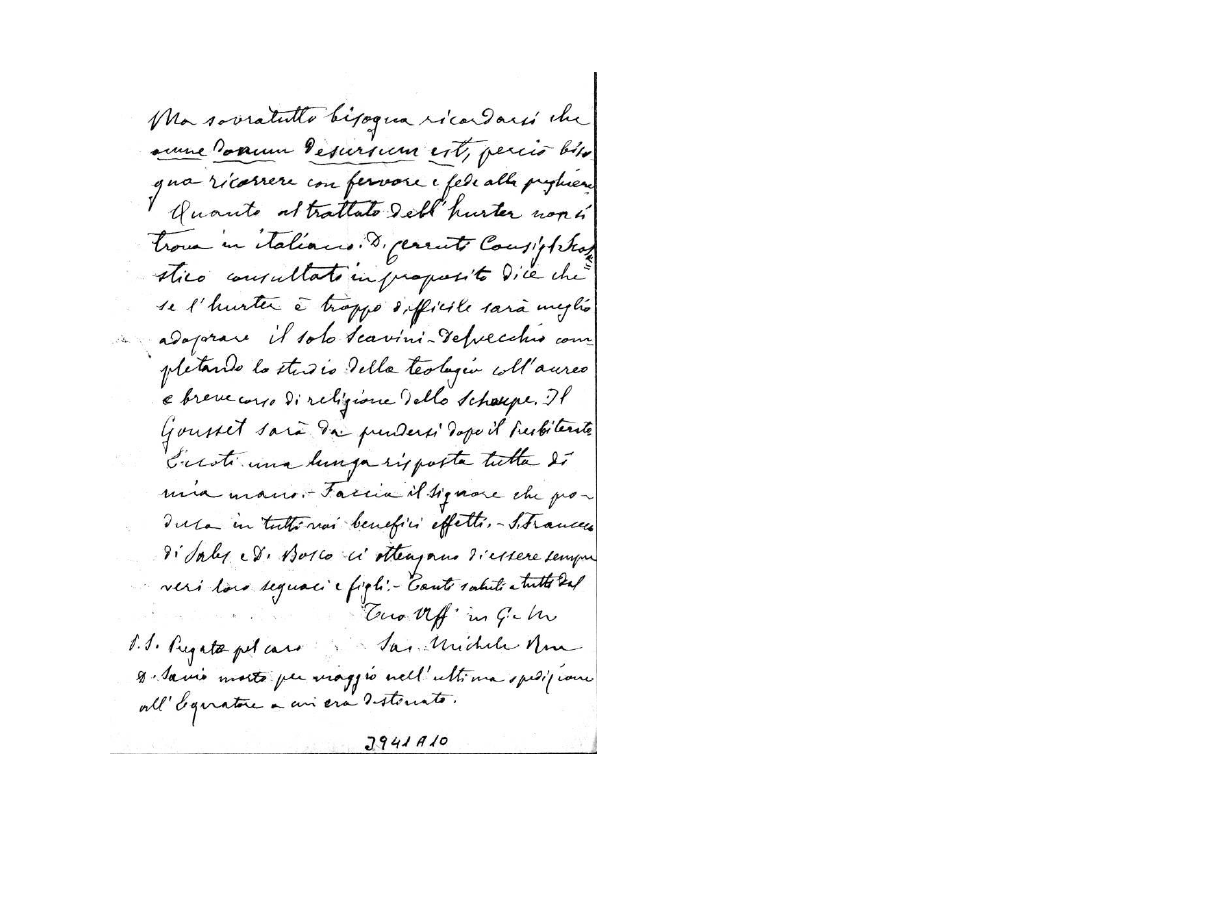 Ma sovratutto bisogna ricordarsi che
omne donum desursum est, perciò biso
gna ricorrere con fervore e fede alla preghiera
Quanto al trattato dell'hurter non si
trova in italiano. D. Cerruti Consigl. Scola
stico consultato in proposito dice che
se l'hurter è troppo difficile sarà meglio
adoprare il solo Scavini-Delvecchio com
pletando lo studio della teologia coll'aureo
e breve corso di religione dello Schouppe. Il
Gousset sarà da prendersi dopo il Presbiterato
Eccoti una lunga risposta tutta di
mia mano. - Faccia il Signore che pro-
duca in tutti noi benefici effetti. - S. Francesco
di Sales e D. Bosco ci ottengano di essere sempre
veri loro seguaci e figli. - Tanti saluti a tutti dal
Tuo aff. in G. e M.
P.S. Pregate pel caro Sac. Michele Rua
D. Savio morto per viaggio nell'ultima spedizione
all'Equatore a cui era destinato.
3941A10